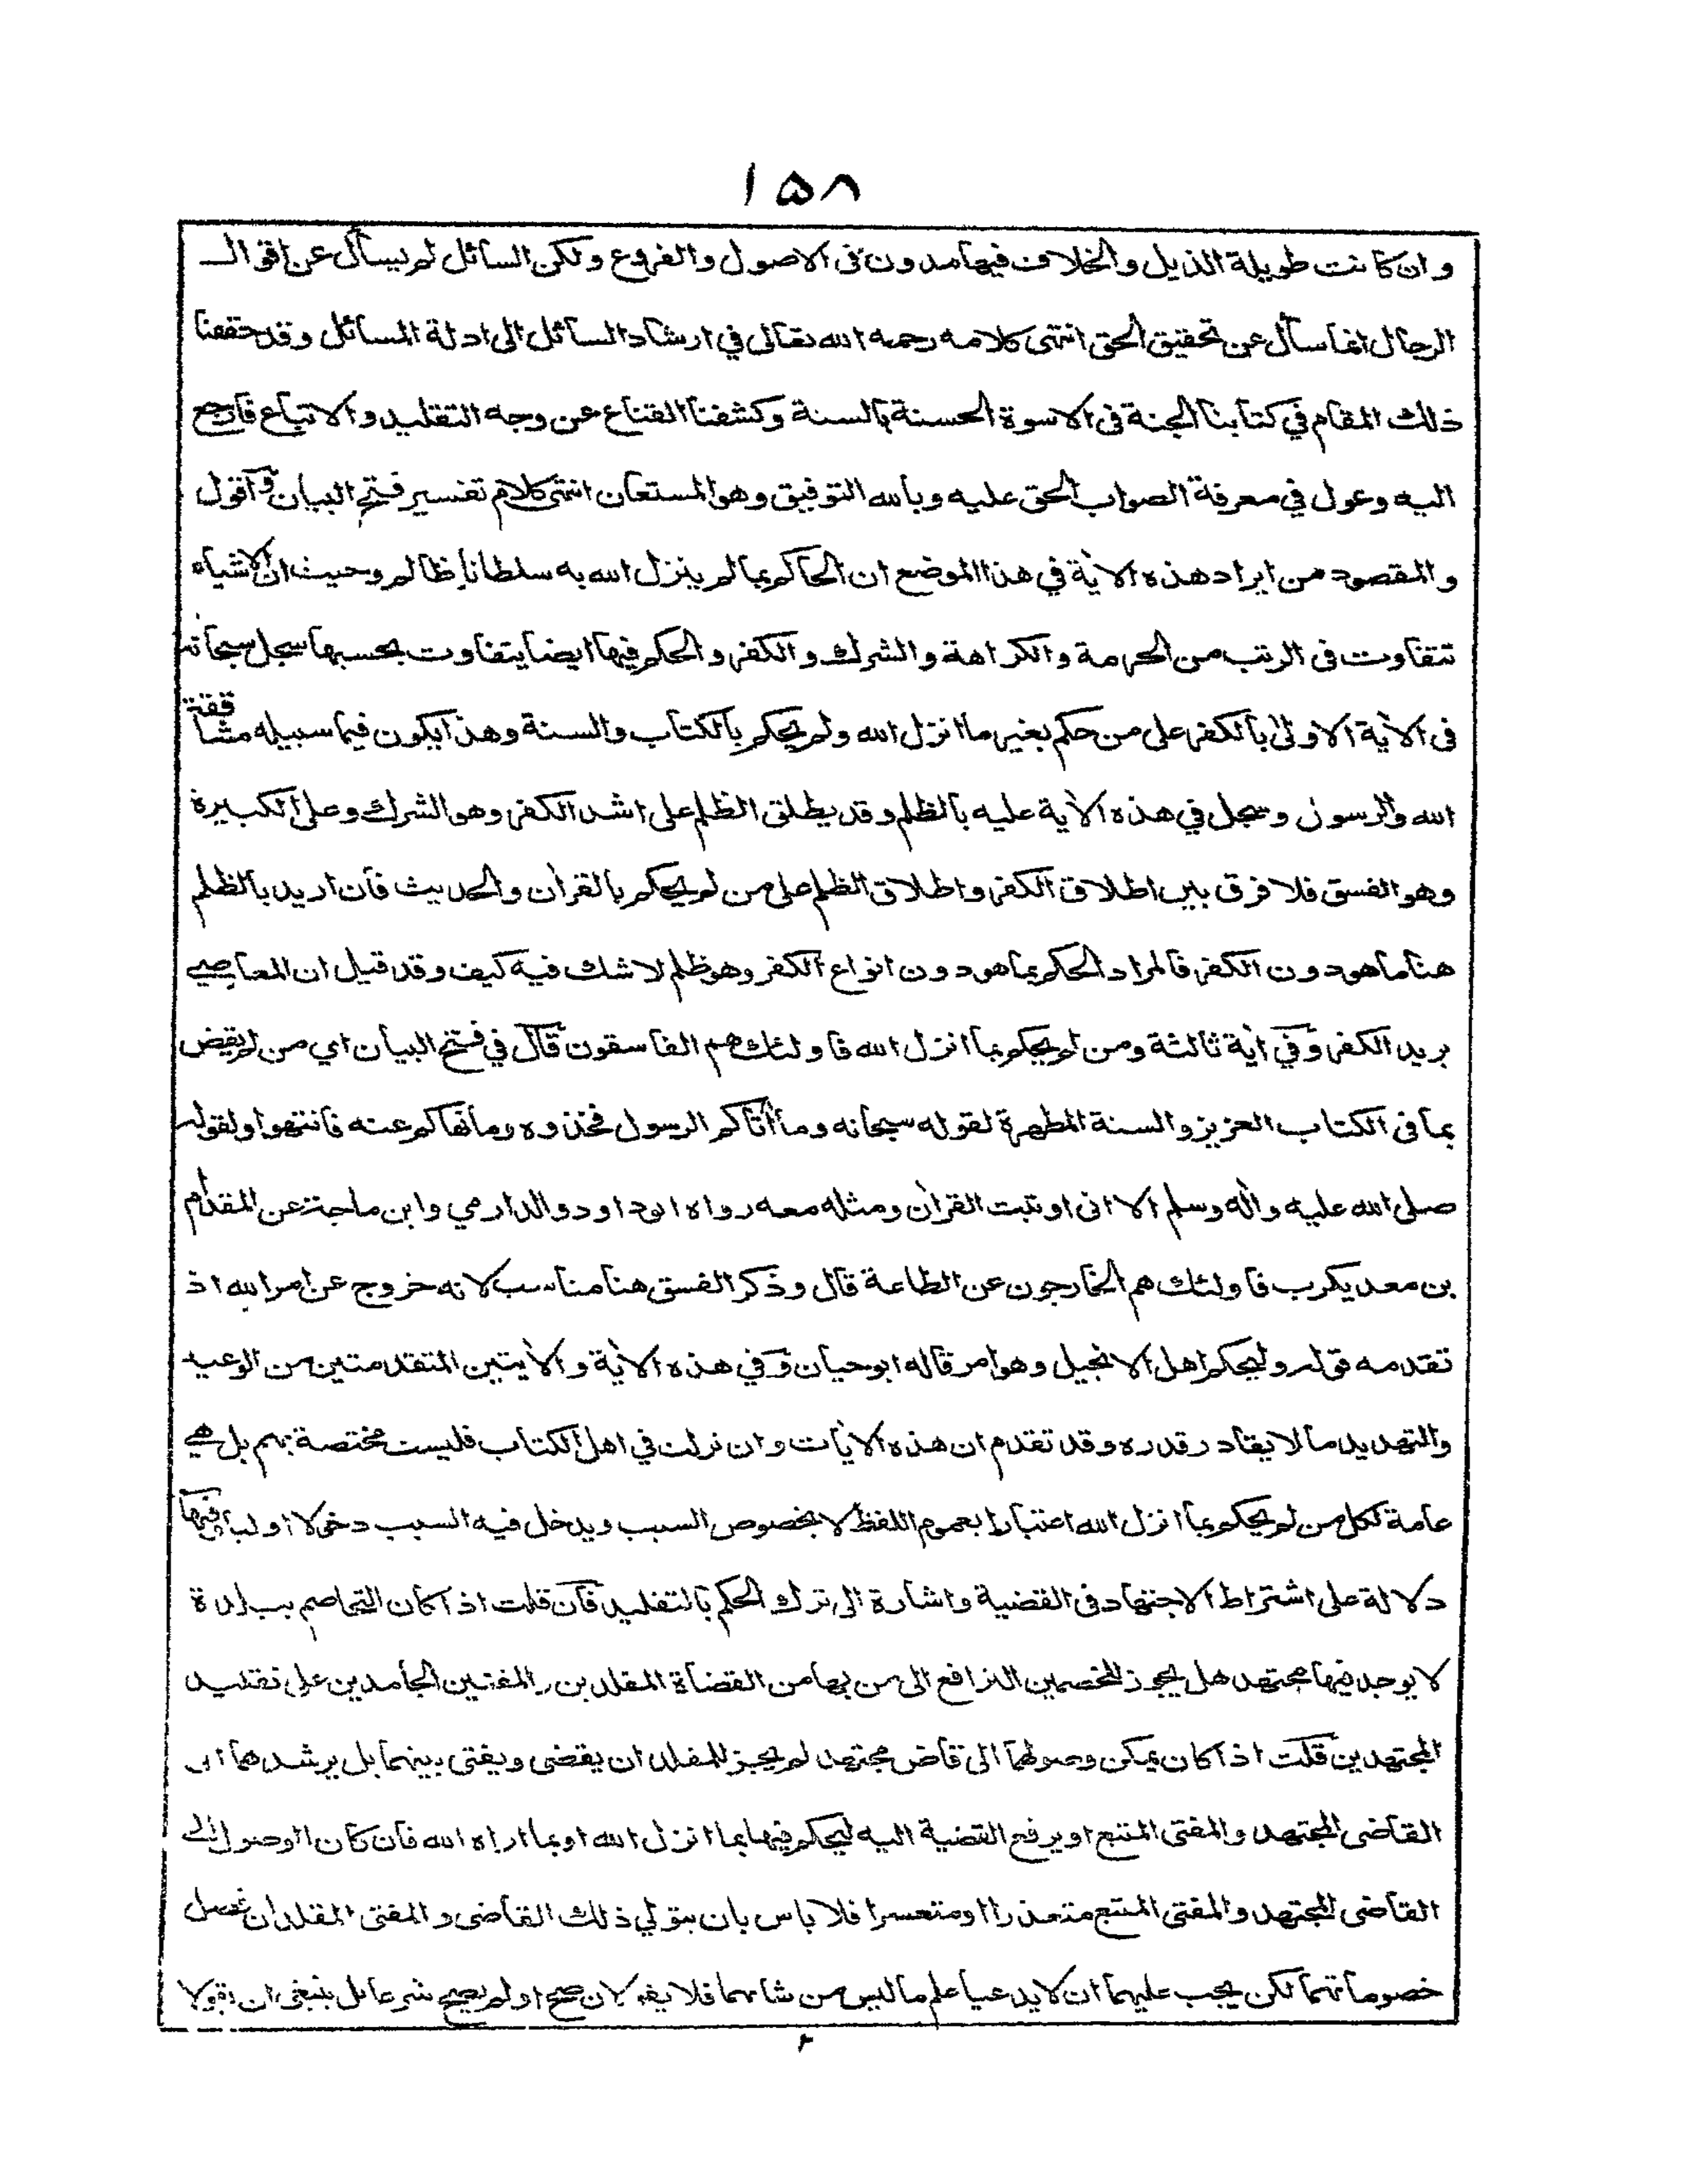 ١٥٨
وان كانت طويلة الذيل والخلاف فيها مدون فى الاصول والفروع ولكن السائل لم يسأل عن اقوال
الرجال انما سأل عن تحقيق الحق انتهى كلامه رحمه الله تعالى في ارشاد السائل الى ادلة المسائل وقد حققنا
ذلك المقام في كتابنا الجنة فى الاسوة الحسنة بالسنة وكشفنا القناع عن وجه التقليد والاتباع فارجع
اليه وعول في معرفة الصواب الحق عليه وبالله التوفيق وهو المستعان انتهى كلام تفسير فتح البيان وأقول
والمقصود من ايراد هذه الاية في هذا الموضع ان الحاكم بما لم ينزل الله به سلطانا ظالم وحيث ان الاشياء
تتفاوت فى الرتب من الحرمة والكراهة والشرك والكفر والحكم فيها ايضا يتفاوت بحسبها سجل سبحانه
فى الاية الاولى بالكفر على من حكم بغير ما انزل الله ولم يحكم بالكتاب والسنة وهذا يكون فيما سبيله مشاققة
الله والرسول وسجل في هذه الاية عليه بالظلم وقد يطلق الظلم على اشد الكفر وهو الشرك وعلى الكبيرة
وهو الفسق فلا فرق بين اطلاق الكفر واطلاق الظلم على من لم يحكم بالقران والحديث فان اريد بالظلم
هنا ما هو دون الكفر فالمراد الحكم بما هو دون انواع الكفر وهو ظلم لا شك فيه كيف وقد قيل ان المعاصي
بريد الكفر وفي اية ثالثة ومن لم يحكم بما انزل الله فاولئك هم الفاسقون قال في فتح البيان اي من لم يقض
بما فى الكتاب العزيز والسنة المطهرة لقوله سبحانه وما أتاكم الرسول فخذوه وما نهاكم عنه فانتهوا ولقوله
صلى الله عليه واله وسلم الا انى اوتيت القران ومثله معه رواه ابو داود والدارمي وابن ماجة عن المقدام
بن معد يكرب فاولئك هم الخارجون عن الطاعة قال وذكر الفسق هنا مناسب لانه خروج عن امر الله اذ
تقدمه قوله وليحكم اهل الانجيل وهو امر قاله ابو حيان وفي هذه الاية والايتين المتقدمتين من الوعيد
والتهديد ما لا يقادر قدره وقد تقدم ان هذه الايات وان نزلت في اهل الكتاب فليست مختصة بهم بل هي
عامة لكل من لم يحكم بما انزل الله اعتبارا بعموم اللفظ لا بخصوص السبب ويدخل فيه السبب دخولا اوليا وفيها
دلالة على اشتراط الاجتهاد فى القضية واشارة الى ترك الحكم بالتقليد فان قلت اذا كان التخاصم ببلدة
لا يوجد فيها مجتهد هل يجوز للخصمين الترافع الى من بها من القضاة المقلدين والمفتين الجامدين على تقليد
المجتهدين قلت اذا كان يمكن وصولهما الى قاض مجتهد لم يجز للمقلد ان يقضى ويفتى بينهما بل يرشدهما الى
القاضى المجتهد والمفتى المتبع او يرفع القضية اليه ليحكم فيها بما انزل الله او بما اراه الله فان كان الوصول الى
القاضى المجتهد والمفتى المتبع متعذرا او متعسرا فلا باس بان يتولي ذلك القاضى والمفتى المقلد ان فصل
خصوماتهما لكن يجب عليهما ان لا يدعيا علم ما ليس من شانهما فلا يقولان صح او لم يصح شرعا بل ينبغى ان يقولا